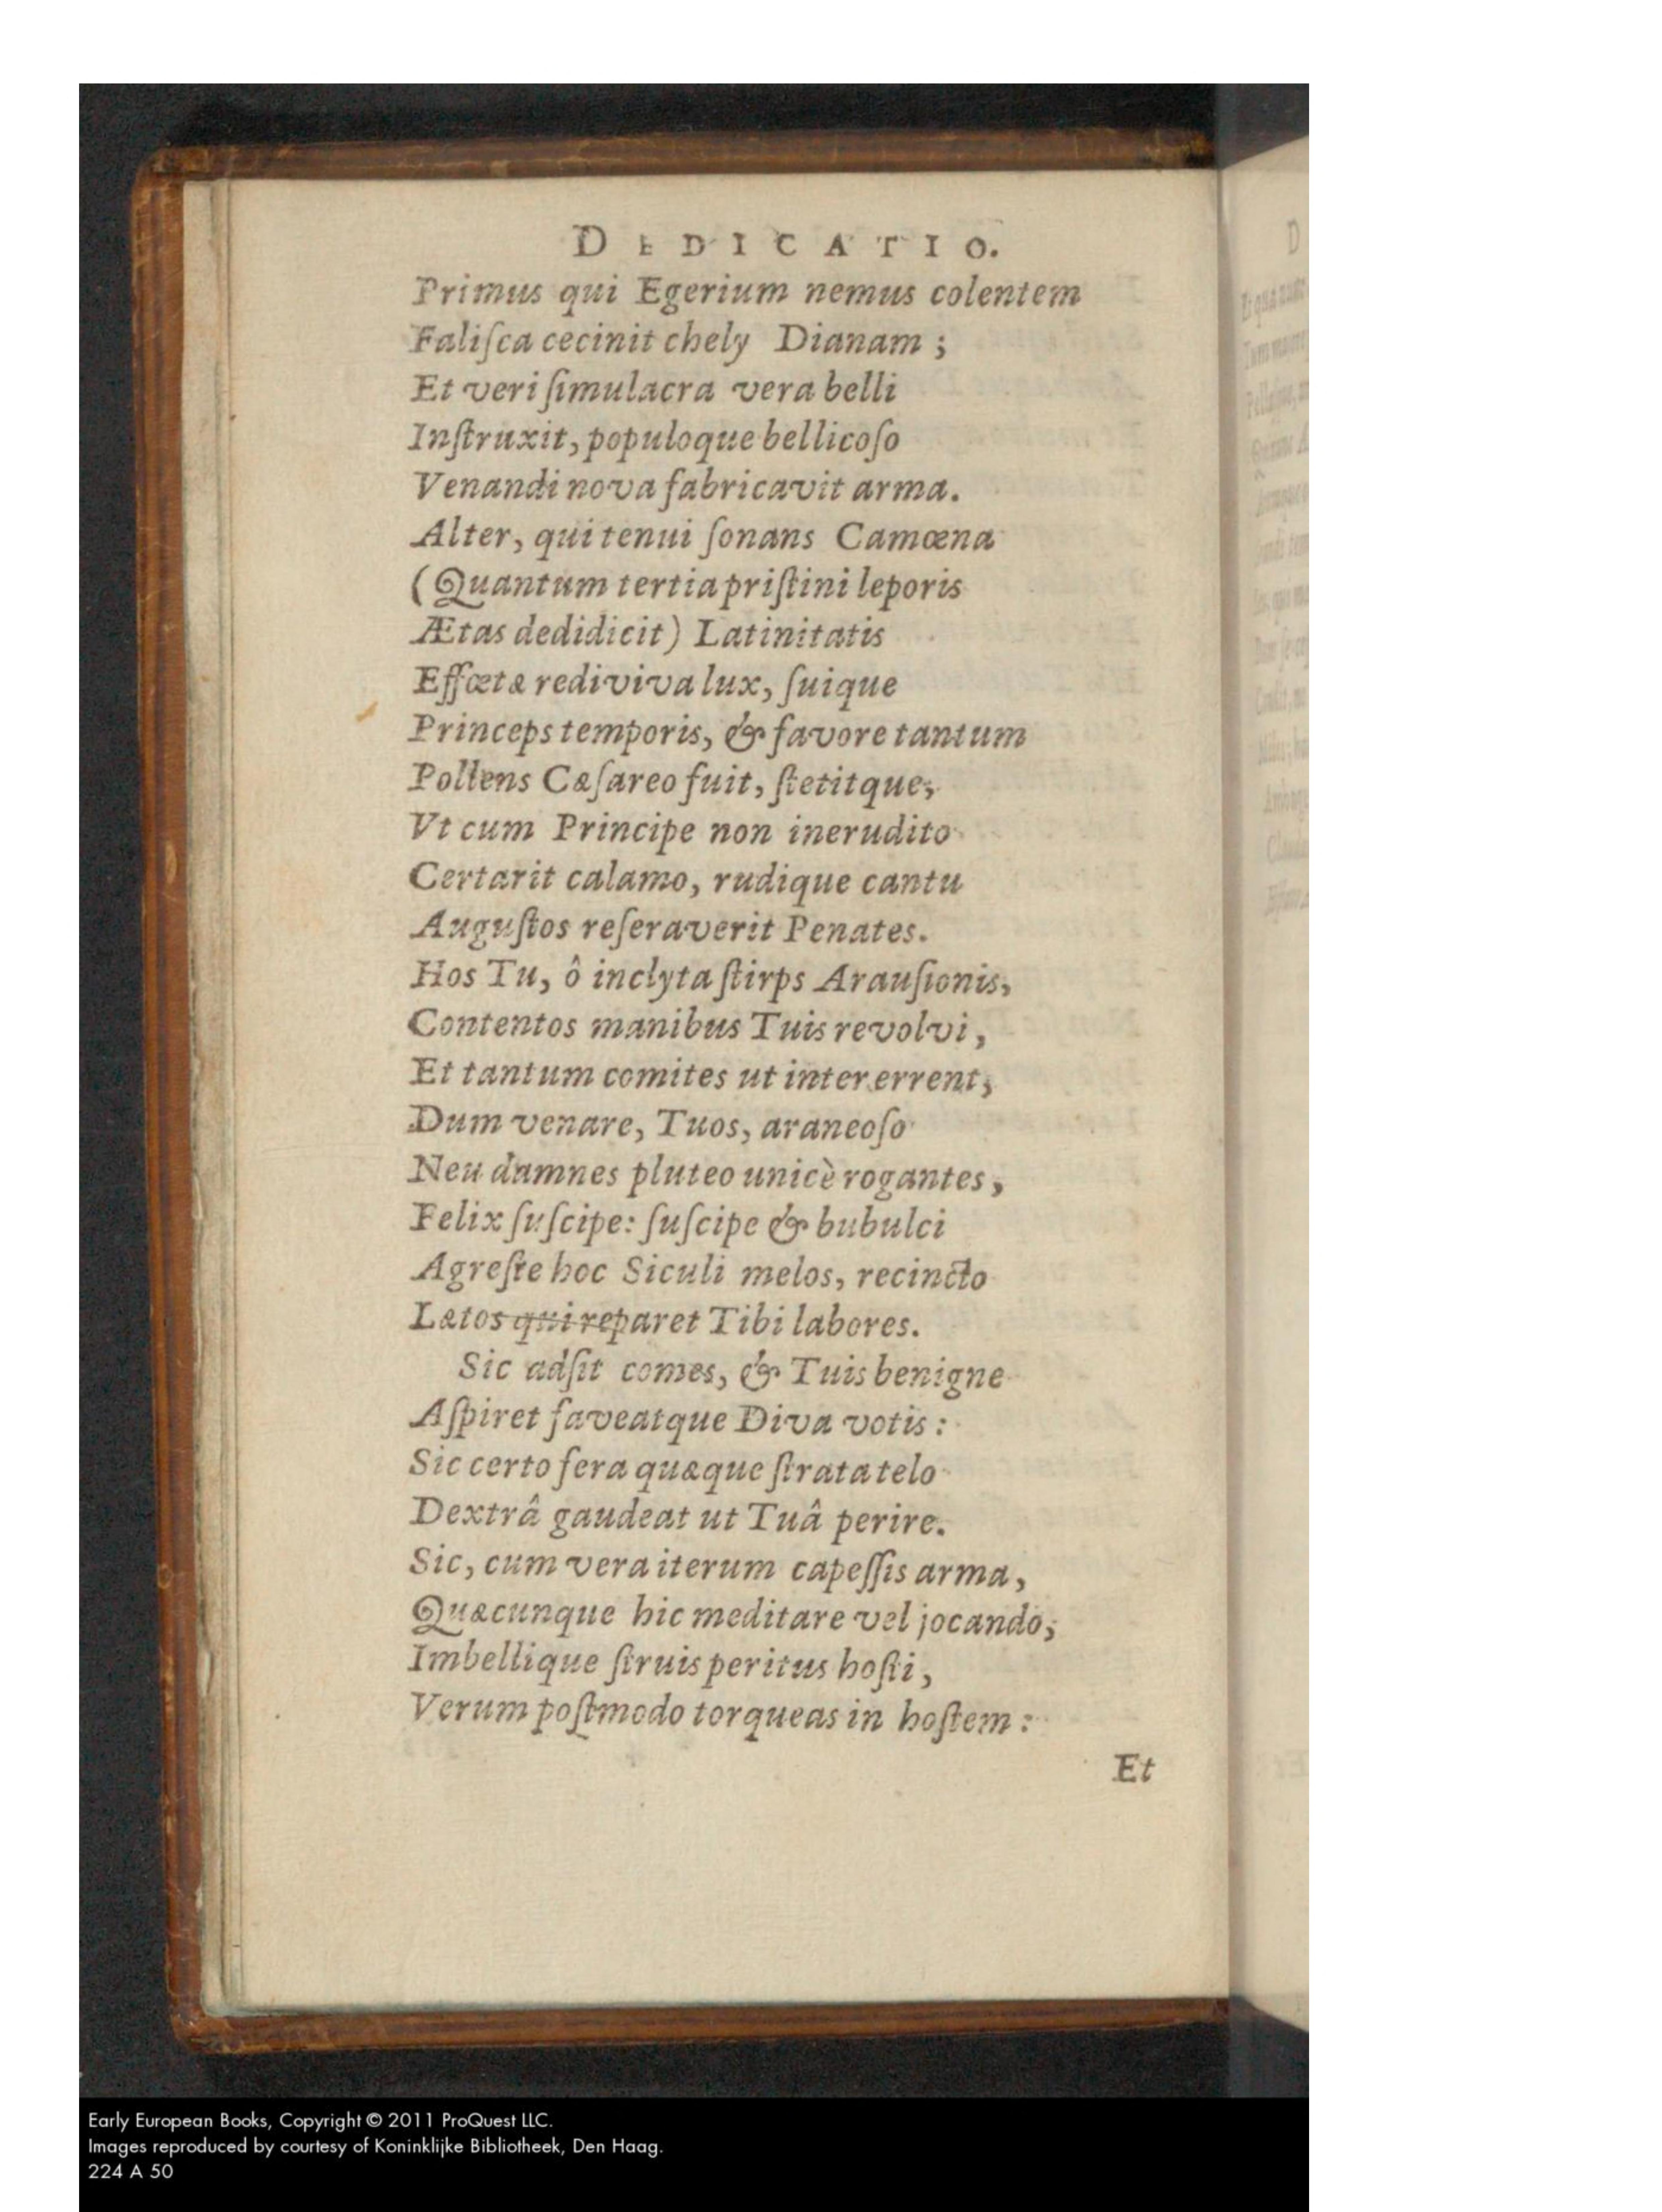 DEDICATIO.
Primus qui Egerium nemus colentem
Faliſca cecinit chely Dianam ;
Et veri ſimulacra vera belli
Inſtruxit, populoque bellicoſo
Venandi nova fabricavit arma.
Alter, qui tenui ſonans Camœna
(Quantum tertia priſtini leporis
Ætas dedidicit) Latinitatis
Effœtæ rediviva lux, ſuique
Princeps temporis, & favore tantum
Pollens Cæſareo fuit, ſtetitque,
Vt cum Principe non inerudito
Certarit calamo, rudique cantu
Auguſtos reſeraverit Penates.
Hos Tu, ô inclyta ſtirps Arauſionis,
Contentos manibus Tuis revolvi,
Et tantum comites ut inter errent,
Dum venare, Tuos, araneoſo
Neu damnes pluteo unicè rogantes,
Felix ſuſcipe: ſuſcipe & bubulci
Agreſte hoc Siculi melos, recincto
Lætos qui reparet Tibi labores.
Sic adſit comes, & Tuis benigne
Aſpiret faveatque Diva votis :
Sic certo fera quæque ſtrata telo
Dextrâ gaudeat ut Tuâ perire.
Sic, cum vera iterum capeſſis arma,
Quæcunque hic meditare vel jocando,
Imbellique ſtruis peritus hoſti,
Verum poſtmodo torqueas in hoſtem :
Et
Early European Books, Copyright © 2011 ProQuest LLC.
Images reproduced by courtesy of Koninklijke Bibliotheek, Den Haag.
224 A 50